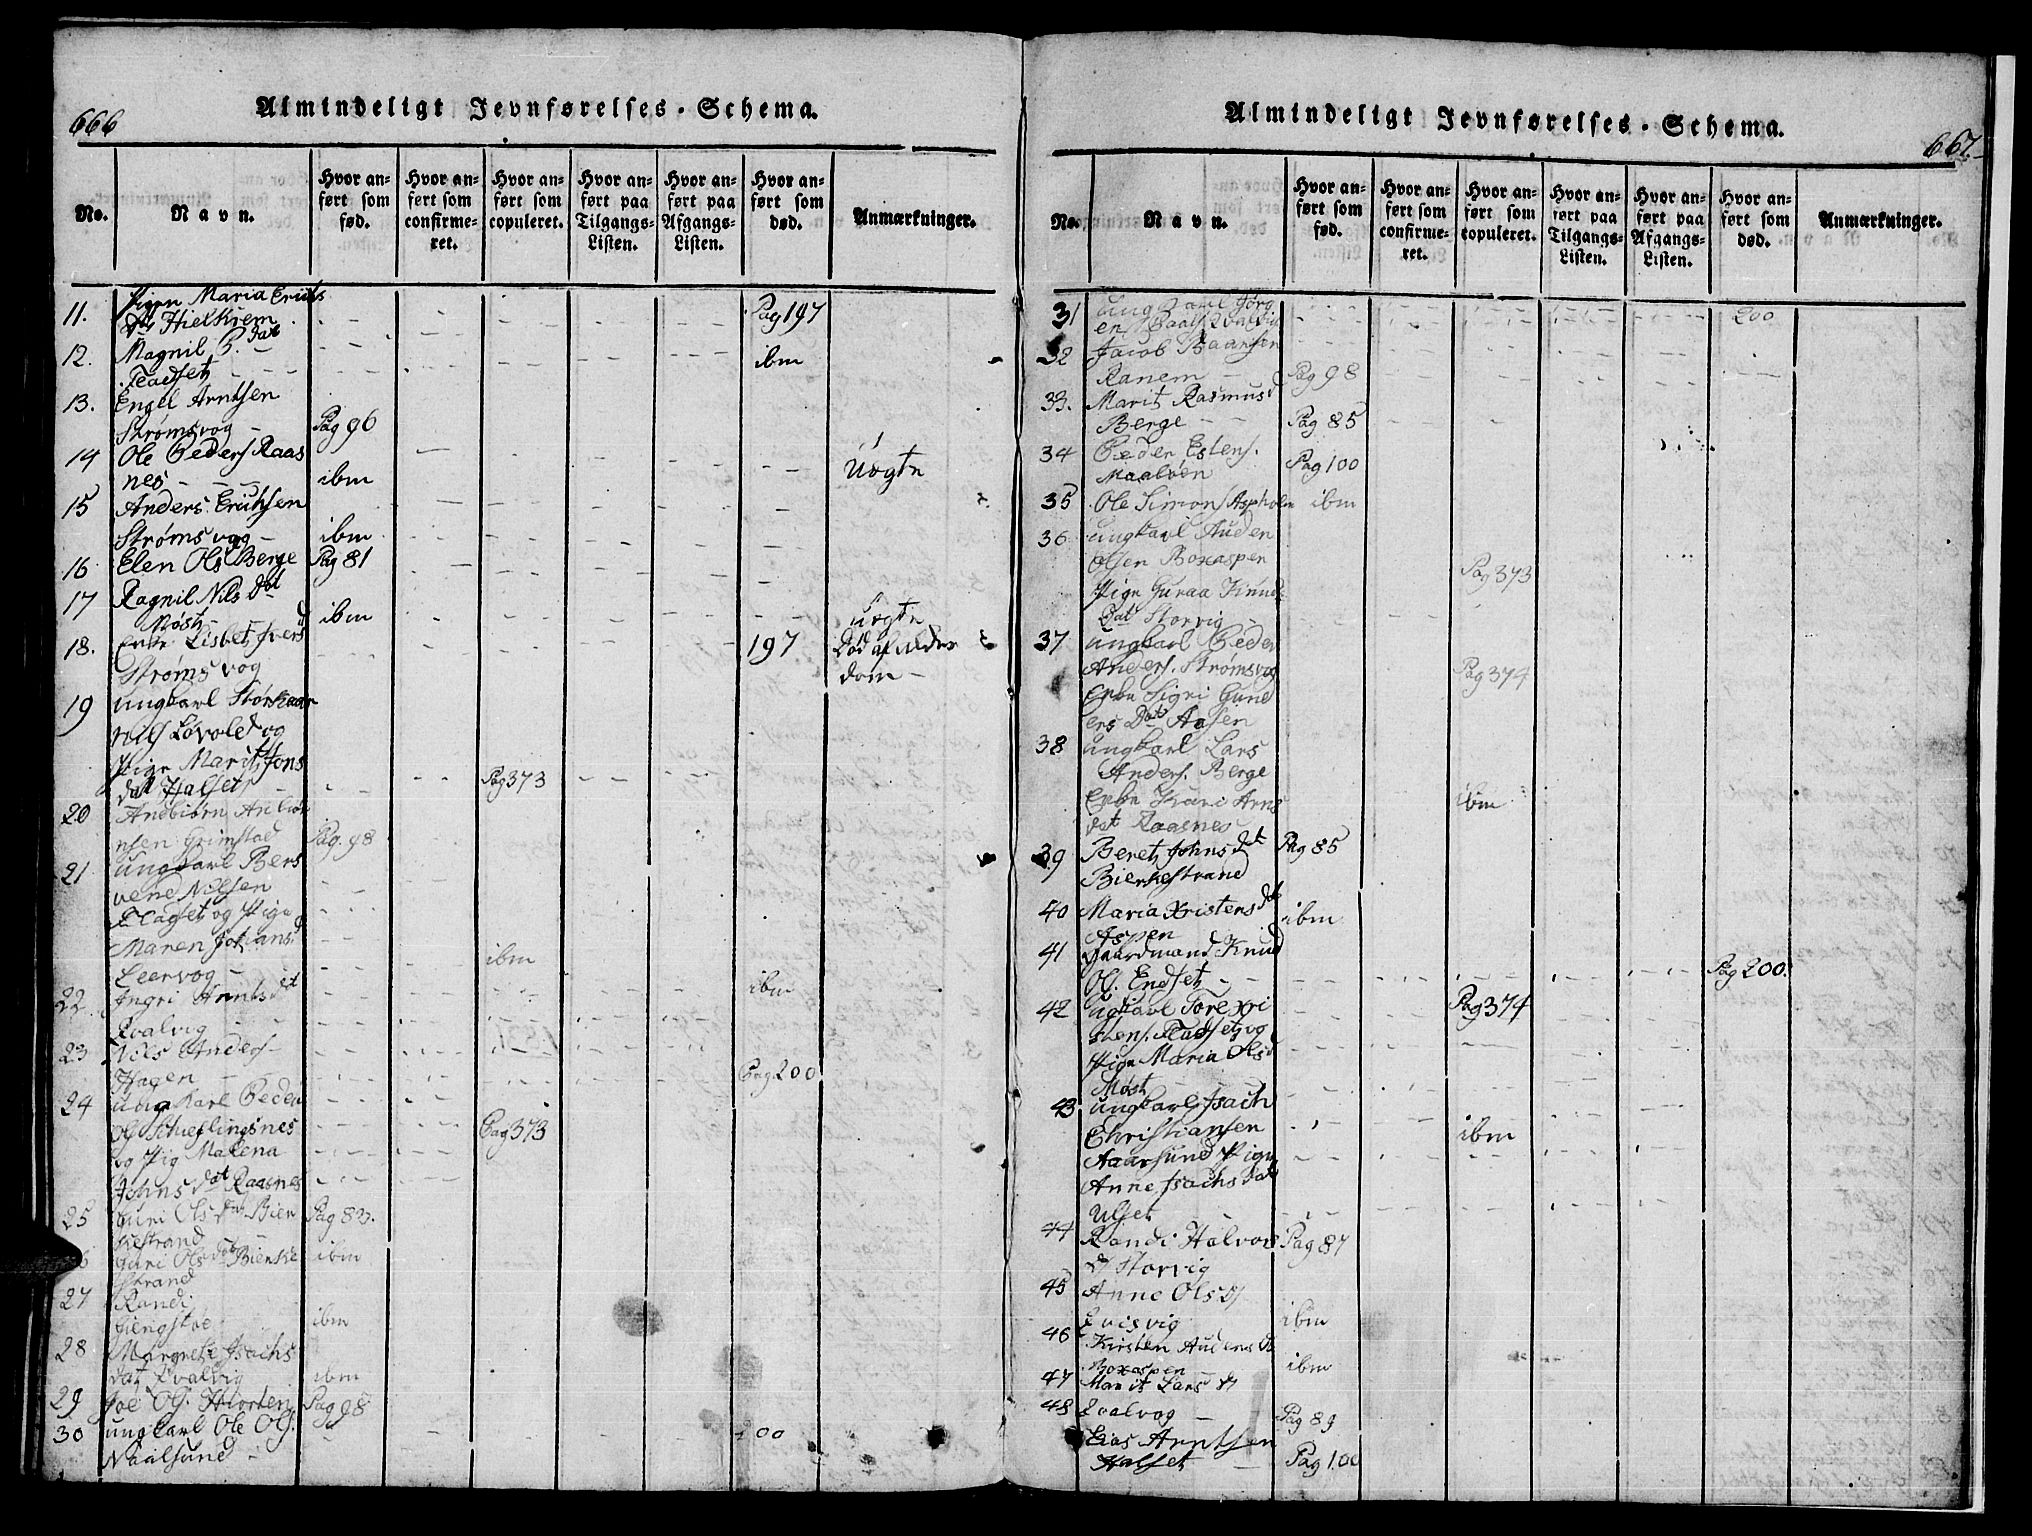 666
Almindeligt Jevnførelses-Schema.
No.
Navn.
Hvor an-
ført som
fød.
Hvor an-
ført som
confirme-
ret.
Hvor an-
ført som
copuleret.
Hvor an-
ført paa
Tilgangs-
Listen.
Hvor an-
ført paa
Afgangs-
Listen.
Hvor an-
ført som
død.
Anmærkninger.
11. Pigen Maria Erichs
Dat Hielkrem Pag 197
12. Magnil P. Dat
Fladsetz ibm
13. Engel Arntsen
Strømsvog Pag 96
14 Ole Peders Raas
nes ibm Uægte
15 Anders Erichsen
Strømsvog ibm
16 Elen Ols Berge Pag 81
17 Ragnil Nils Dat
Møst ibm Uægte
18. Enke Lisbet Ivers d
Strømsvog 197 Død af Alder
dom
19 ungkarl Størkaar
Nils Løvold og
Pige Marit Jons
dat Halset Pag 373
20 Andbiørn
nsen Grimstad Pag. 98
21 Ungkarl Bers
vend Nilsen
Fladsetz og Pige
Maren Johans d
Leervog ibm
22 Ingri Arnts dat ibm
Qvalvig
23 Nils Anders
Hagen Pag 200
24 ungkarl Peder
Ols Skieflingsnes Pag 373
og Pig Malena
Johns dat Raasnes
25 Guri Ols Dat Bier Pag 83.
kestrand
26 Guri Ols dat Bierke ibm
strand
27 Randi
ibm
28 Margrete Isachs
dat Qvalvig ibm
29 Joe Ols. Pag 98
30 ungkarl Ole Ols. 200
Naalsund
667
Almindeligt Jevnførelses-Schema.
No.
Navn.
Hvor an-
ført som
fød.
Hvor an-
ført som
confirme-
ret.
Hvor an-
ført som
copuleret.
Hvor an-
ført paa
Tilgangs-
Listen.
Hvor an-
ført paa
Afgangs-
Listen.
Hvor an-
ført som
død.
Anmærkninger.
31 ung Karl Jørg
en Qvalvig 200
32 Jacob Baarsen
Ranem Pag 98
33. Marit Rasmus d
Berge Pag 85
34 Peder Estens.
Maaløen Pag 100
35 Ole Simons Aspholm ibm
36 ungkarl Auden
Olsen Boxaspen Pag 373
Pige Guraa Knuds
Dat Storvig
37 ungkarl Peder
Anders. Strømsvog Pag 374
Enke Sigri Gund
ers Dat Aasen
38 ungkarl Lars
Anders. Berge
Enke Kari Arns ibm
dat Raasnes
39 Beret Johns dat Pag 85
Bierkestrand
40 Maria Kristens d
Aspen ibm
41 Gaardmand Knud
Ols. Endset Pag 200.
42 Ugkarl Tore Kri Pag 374
stens. Fladset og
Pige Maria Ols d
Møst
43 ungkarl Isach
Christiansen ibm
Aarsund Pige
Anne Isachs dat
Ulset
44 Randi Halvors Pag 87
d Storvig
45 Anne Ols d
Evisvig ibm
46 Kirsten Audens d
Boxaspen ibm
47 Marit Lars d
48 Qvalvog Pag 89
Elias Arntsen
Halset Pag 100